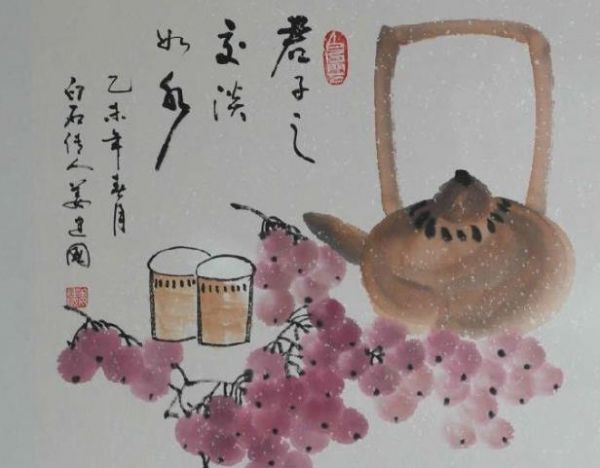 君子之
交淡
如水
乙未年春月
白石传人姜建國